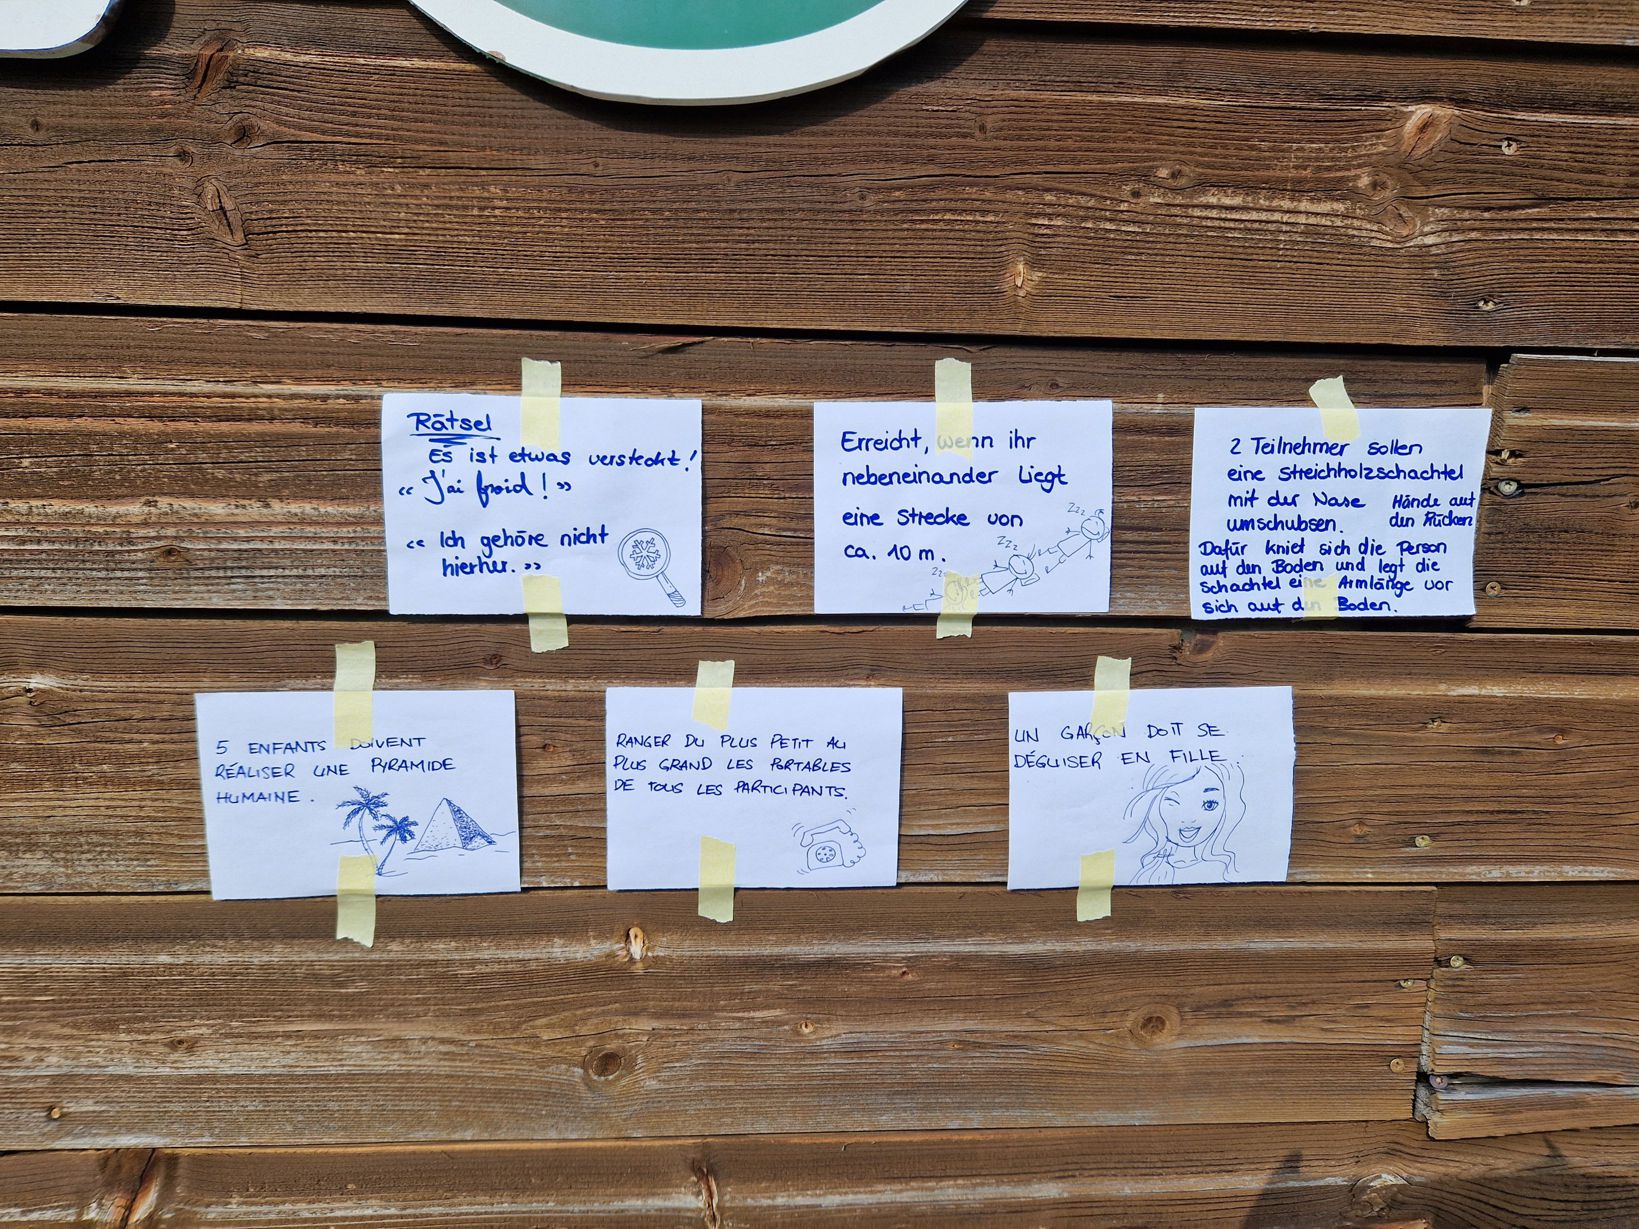 Rätsel
Es ist etwas versteckt!
« J'ai froid! »
« Ich gehöre nicht
hierher. »
Erreicht, wenn ihr
nebeneinander liegt
eine Strecke von
ca. 10 m.
zzz
zzz
zz
2 Teilnehmer sollen
eine Streichholzschachtel
mit der Nase Hände auf
umschubsen. den Rücken
Dafür kniet sich die Person
auf den Boden und legt die
Schachtel eine Armlänge vor
sich auf den Boden.
5 ENFANTS DOIVENT
RÉALISER UNE PYRAMIDE
HUMAINE.
RANGER DU PLUS PETIT AU
PLUS GRAND LES PORTABLES
DE TOUS LES PARTICIPANTS.
UN GARÇON DOIT SE
DÉGUISER EN FILLE.